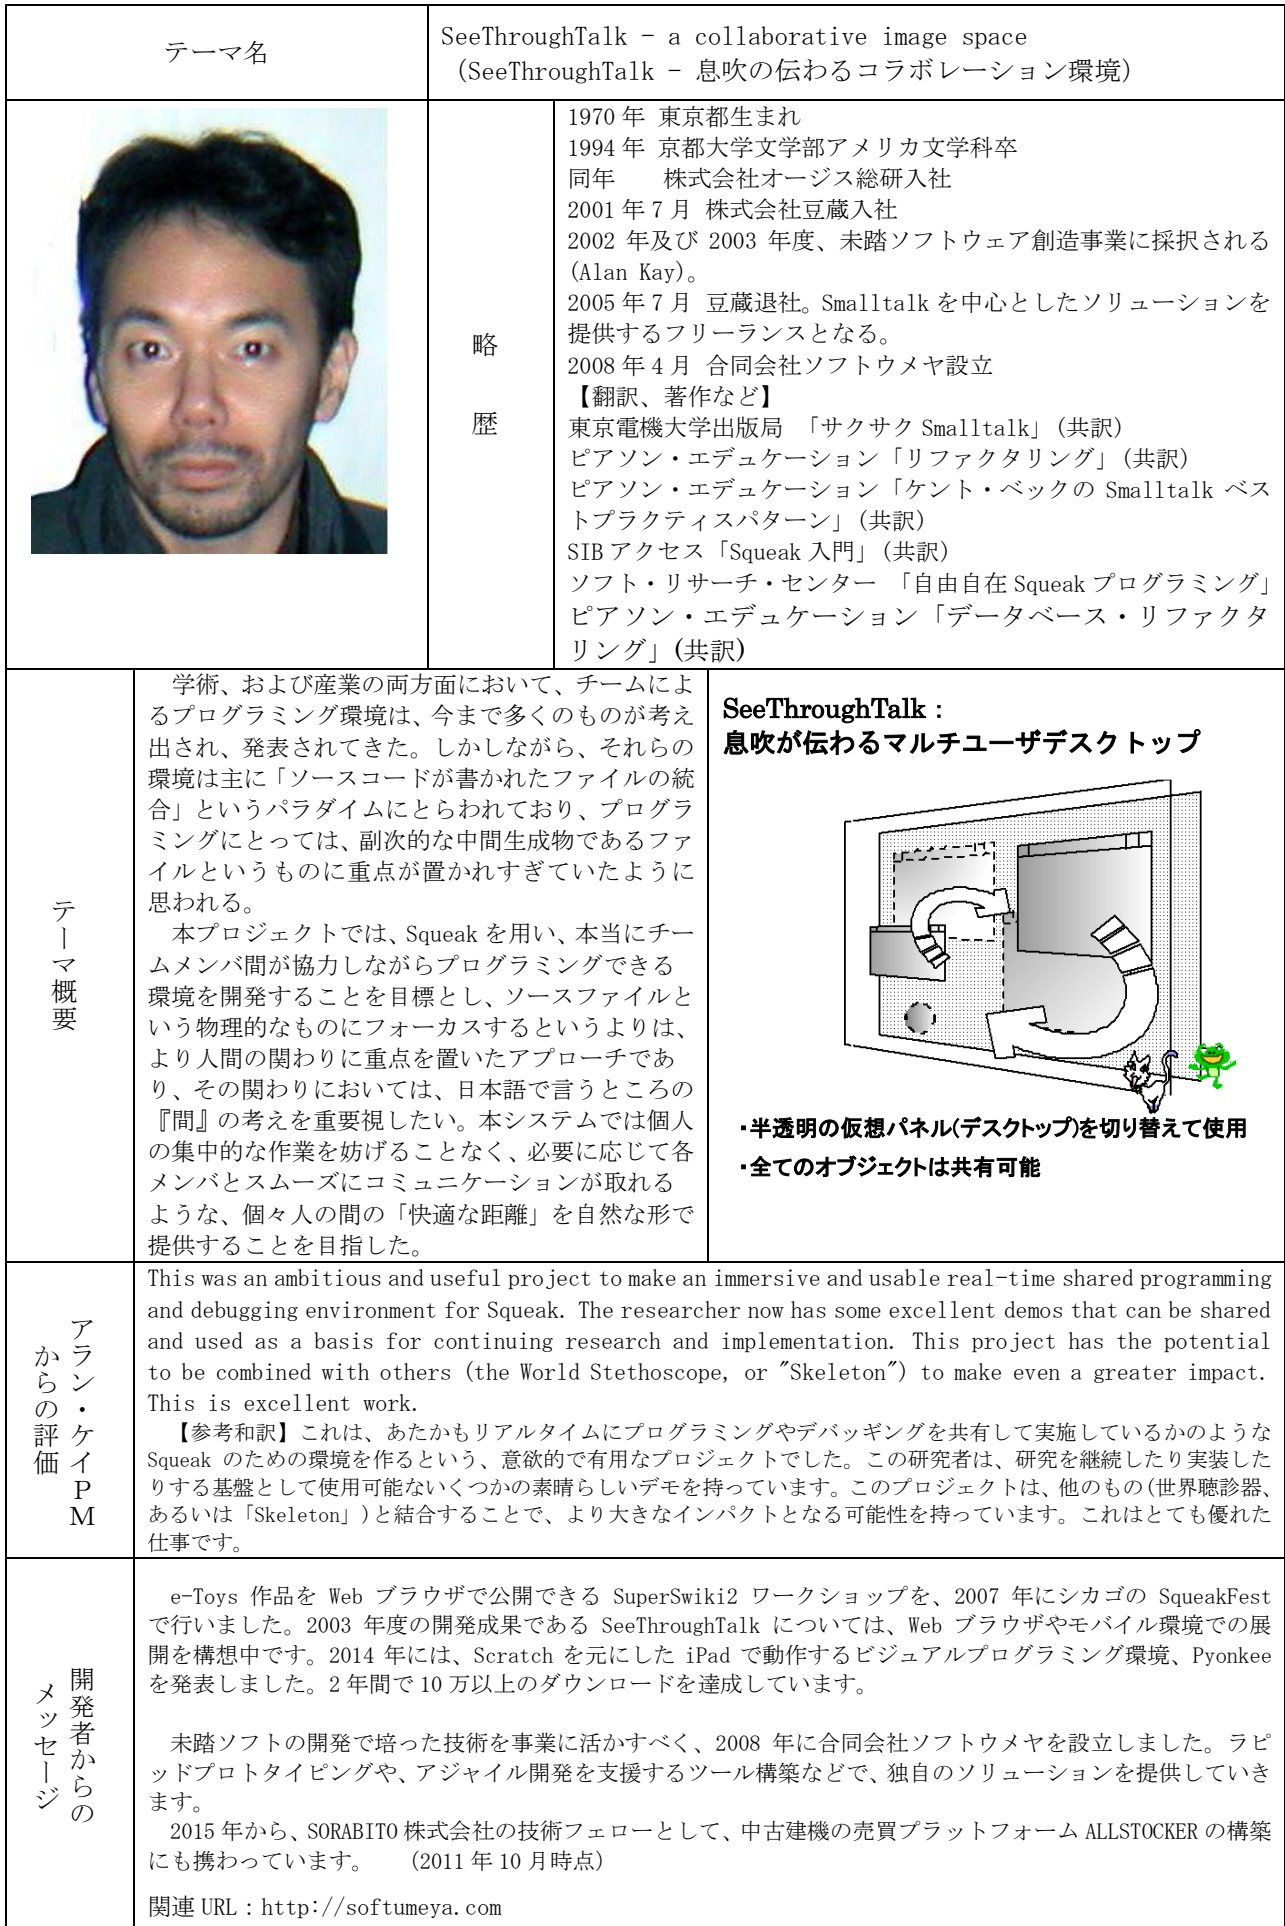 テーマ名
SeeThroughTalk - a collaborative image space
(SeeThroughTalk - 息吹の伝わるコラボレーション環境)
略歴
1970 年 東京都生まれ
1994 年 京都大学文学部アメリカ文学科卒
同年 株式会社オージス総研入社
2001 年 7 月 株式会社豆蔵入社
2002 年及び 2003 年度、未踏ソフトウェア創造事業に採択される
(Alan Kay)。
2005 年 7 月 豆蔵退社。Smalltalk を中心としたソリューションを
提供するフリーランスとなる。
2008 年 4 月 合同会社ソフトウメヤ設立
【翻訳、著作など】
東京電機大学出版局 「サクサク Smalltalk」(共訳)
ピアソン・エデュケーション「リファクタリング」(共訳)
ピアソン・エデュケーション「ケント・ベックの Smalltalk ベス
トプラクティスパターン」(共訳)
SIB アクセス「Squeak 入門」(共訳)
ソフト・リサーチ・センター 「自由自在 Squeak プログラミング」
ピアソン・エデュケーション「データベース・リファクタ
リング」(共訳)
テーマ概要
学術、および産業の両方面において、チームによ
るプログラミング環境は、今まで多くのものが考え
出され、発表されてきた。しかしながら、それらの
環境は主に「ソースコードが書かれたファイルの統
合」というパラダイムにとらわれており、プログラ
ミングにとっては、副次的な中間生成物であるファ
イルというものに重点が置かれすぎていたように
思われる。
本プロジェクトでは、Squeak を用い、本当にチー
ムメンバ間が協力しながらプログラミングできる
環境を開発することを目標とし、ソースファイルと
いう物理的なものにフォーカスするというよりは、
より人間の関わりに重点を置いたアプローチであ
り、その関わりにおいては、日本語で言うところの
『間』の考えを重要視したい。本システムでは個人
の集中的な作業を妨げることなく、必要に応じて各
メンバとスムーズにコミュニケーションが取れる
ような、個々人の間の「快適な距離」を自然な形で
提供することを目指した。
SeeThroughTalk：
息吹が伝わるマルチユーザデスクトップ
・半透明の仮想パネル(デスクトップ)を切り替えて使用
・全てのオブジェクトは共有可能
アラン・ケイＰＭ
からの評価
This was an ambitious and useful project to make an immersive and usable real-time shared programming
and debugging environment for Squeak. The researcher now has some excellent demos that can be shared
and used as a basis for continuing research and implementation. This project has the potential
to be combined with others (the World Stethoscope, or "Skeleton") to make even a greater impact.
This is excellent work.
【参考和訳】これは、あたかもリアルタイムにプログラミングやデバッギングを共有して実施しているかのような
Squeak のための環境を作るという、意欲的で有用なプロジェクトでした。この研究者は、研究を継続したり実装した
りする基盤として使用可能ないくつかの素晴らしいデモを持っています。このプロジェクトは、他のもの(世界聴診器、
あるいは「Skeleton」)と結合することで、より大きなインパクトとなる可能性を持っています。これはとても優れた
仕事です。
開発者からの
メッセージ
e-Toys 作品を Web ブラウザで公開できる SuperSwiki2 ワークショップを、2007 年にシカゴの SqueakFest
で行いました。2003 年度の開発成果である SeeThroughTalk については、Web ブラウザやモバイル環境での展
開を構想中です。2014 年には、Scratch を元にした iPad で動作するビジュアルプログラミング環境、Pyonkee
を発表しました。2 年間で 10 万以上のダウンロードを達成しています。
未踏ソフトの開発で培った技術を事業に活かすべく、2008 年に合同会社ソフトウメヤを設立しました。ラピ
ッドプロトタイピングや、アジャイル開発を支援するツール構築などで、独自のソリューションを提供していき
ます。
2015 年から、SORABITO 株式会社の技術フェローとして、中古建機の売買プラットフォーム ALLSTOCKER の構築
にも携わっています。 (2011 年 10 月時点)
関連 URL：http://softumeya.com